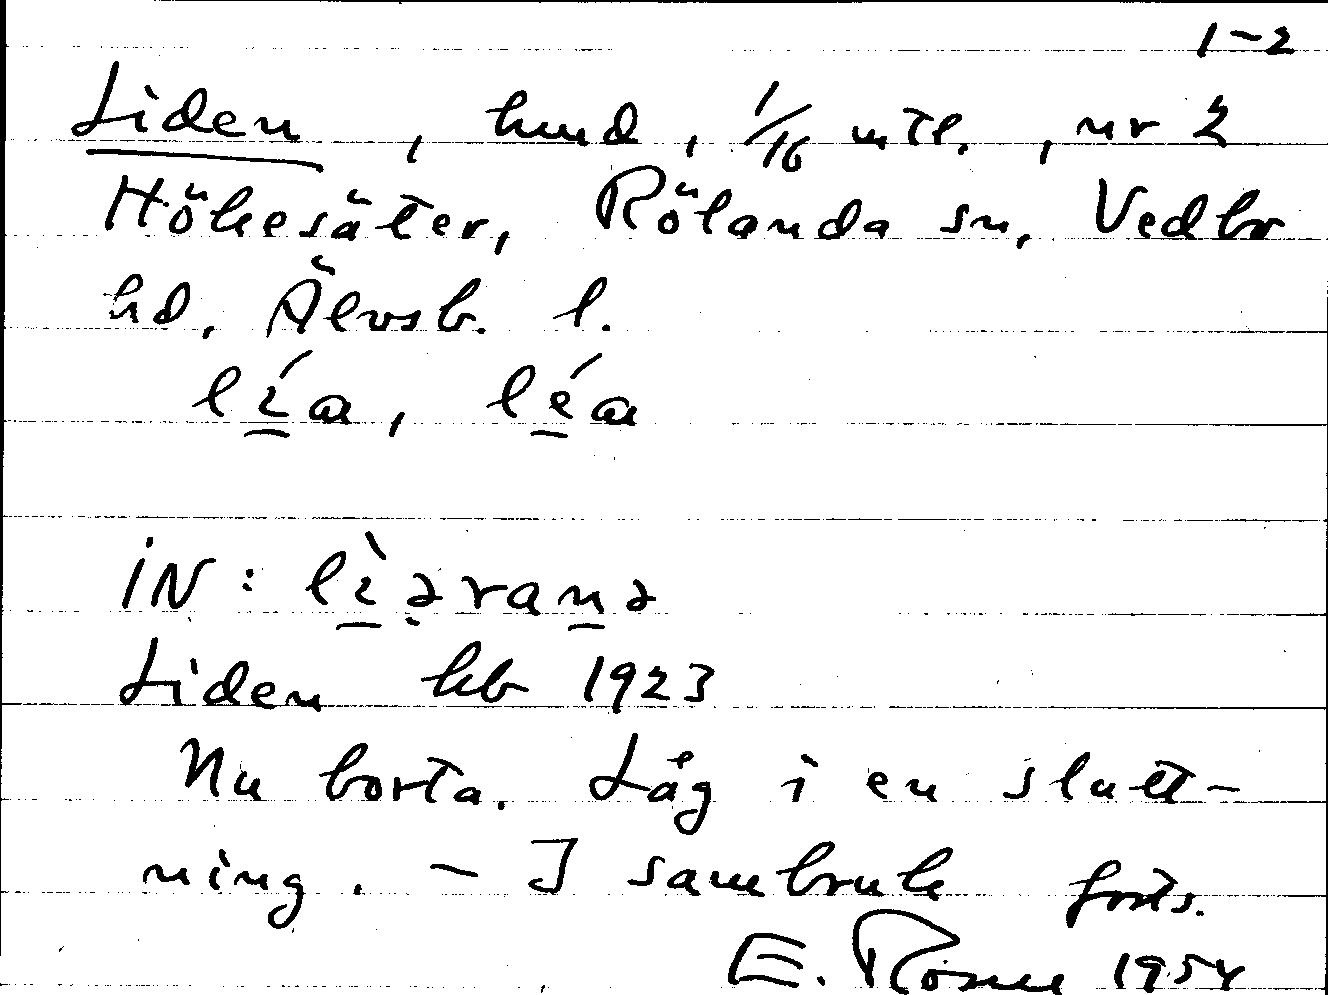 1-2
Liden, hmd, 1/16 mtl., nr 2
Hökesäter, Rölanda sn, Vedbo
hd, Älvsb. l.
lı̱́a, lé̱a
iN: lı̱̀ə̣raṉə
Liden kb 1923
Nu borta. Låg i en slutt-
ning. - I sambruk forts.
E. 1954